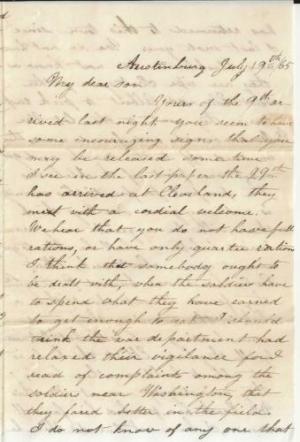 Austinburg July 19th 65
My dear son
Yours of the 9th ar
rived last night you seem to have
some incouraging signs that you
may be released some time
I see in the last paper the 29th
has arrived at Cleveland, they
met with a cordial welcome.
We hear that you do not have full
rations, or have only quarter rations
I think that somebody ought to
be dealt with, when the soldiers have
to spend what they have earned
to get enough to eat I should
think the war department had
relaxed their vigilance for I
read of complaints among the
soldiers near Washington, that
they fared better in the field
I do not know of any one that